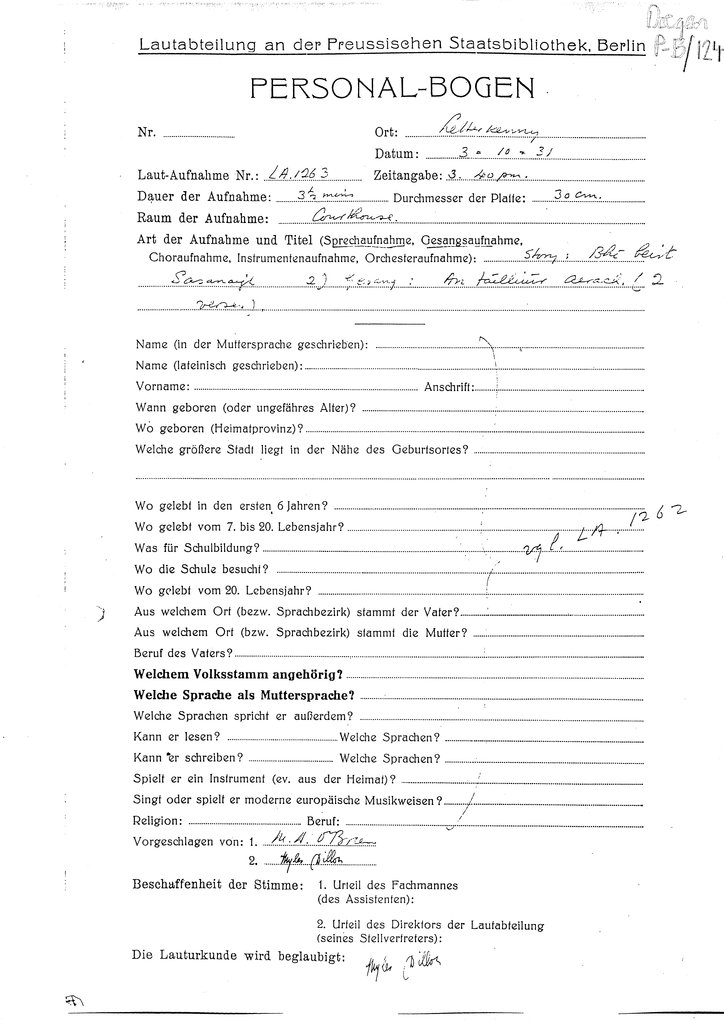 Doegen
P-B/124
Lautabteilung an der Preussischen Staatsbibliothek, Berlin
PERSONAL-BOGEN
Nr.
Ort: Letterkenny
Datum: 3 - 10 - 31
Laut-Aufnahme Nr.: LA.1263 Zeitangabe: 3. 40 pm.
Dauer der Aufnahme: 3½ mins Durchmesser der Platte: 30 cm.
Raum der Aufnahme: Courthouse.
Art der Aufnahme und Titel (Sprechaufnahme, Gesangsaufnahme,
Choraufnahme, Instrumentenaufnahme, Orchesteraufnahme): Story: Bhí beirt
Sasanaigh 2) Gesang: An táilliúir aerach. (2
verse.)
Name (in der Muttersprache geschrieben):
Name (lateinisch geschrieben):
Vorname: Anschrift:
Wann geboren (oder ungefähres Alter)?
Wo geboren (Heimatprovinz)?
Welche größere Stadt liegt in der Nähe des Geburtsortes?
Wo gelebt in den ersten 6 Jahren?
Wo gelebt vom 7. bis 20. Lebensjahr?
vgl. LA. 1262
Was für Schulbildung?
Wo die Schule besucht?
Wo gelebt vom 20. Lebensjahr?
Aus welchem Ort (bezw. Sprachbezirk) stammt der Vater?
Aus welchem Ort (bzw. Sprachbezirk) stammt die Mutter?
Beruf des Vaters?
Welchem Volksstamm angehörig?
Welche Sprache als Muttersprache?
Welche Sprachen spricht er außerdem?
Kann er lesen? Welche Sprachen?
Kann er schreiben? Welche Sprachen?
Spielt er ein Instrument (ev. aus der Heimat)?
Singt oder spielt er moderne europäische Musikweisen?
Religion: Beruf:
Vorgeschlagen von: 1. M. A. O'Brien
2. Myles Dillon
Beschaffenheit der Stimme: 1. Urteil des Fachmannes
(des Assistenten):
2. Urteil des Direktors der Lautabteilung
(seines Stellvertreters):
Die Lauturkunde wird beglaubigt: Myles Dillon